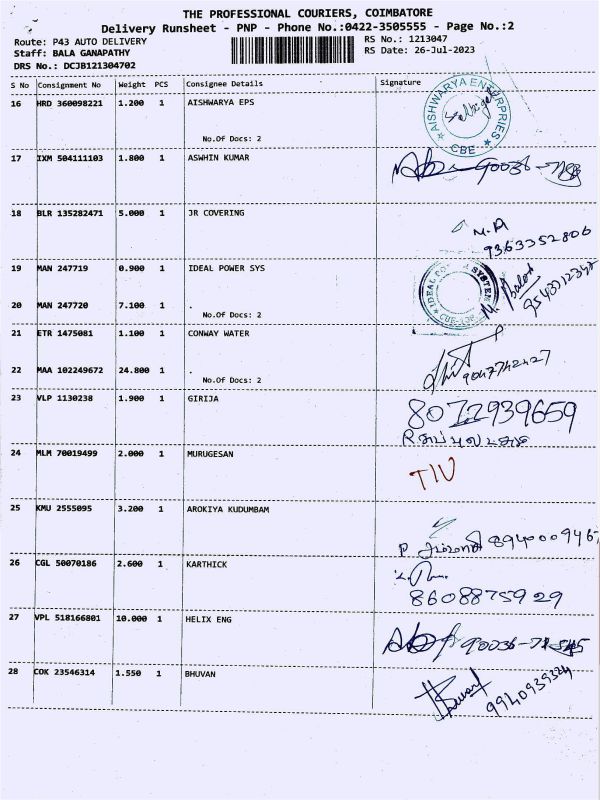 THE PROFESSIONAL COURIERS, COIMBATORE
Delivery Runsheet - PNP - Phone No.:0422-3505555 - Page No.:2
Route: P43 AUTO DELIVERY
RS No.: 1213047
Staff: BALA GANAPATHY
RS Date: 26-Jul-2023
DRS No.: DCJB121304702
S No Consignment No Weight PCS Consignee Details Signature
16 HRD 360098221 1.200 1 AISHWARYA EPS
AISHWARYA ENTERPRISES
CBE
No.Of Docs: 2
17 IXM 504111103 1.800 1 ASWHIN KUMAR
90036
18 BLR 135282471 5.000 1 JR COVERING
M.A
9363352806
19 MAN 247719 0.900 1 IDEAL POWER SYS
IDEAL SYSTEM
20 MAN 247720 7.100 1 .
No.Of Docs: 2
21 ETR 1475081 1.100 1 CONWAY WATER
22 MAA 102249672 24.800 1 .
9047742427
No.Of Docs: 2
23 VLP 1130238 1.900 1 GIRIJA
8072939659
24 MLM 70019499 2.000 1 MURUGESAN
TIV
25 KMU 2555095 3.200 1 AROKIYA KUDUMBAM
26 CGL 50070186 2.600 1 KARTHICK
8608875929
27 VPL 518166801 10.000 1 HELIX ENG
90036
28 COK 23546314 1.550 1 BHUVAN
9940939324